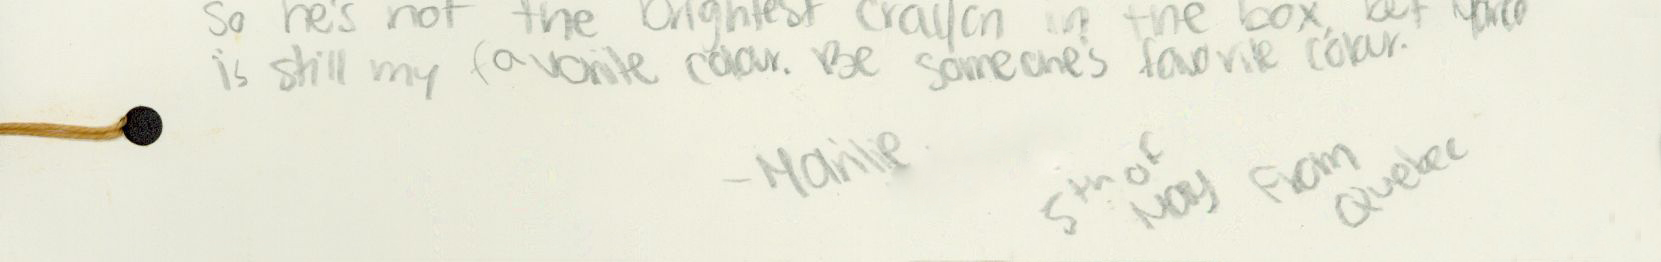 So he's not the brightest crayon in the box, but
is still my favorite colour. Be someone's favorite colour.
- Marilie
5th of
May From
Quebec